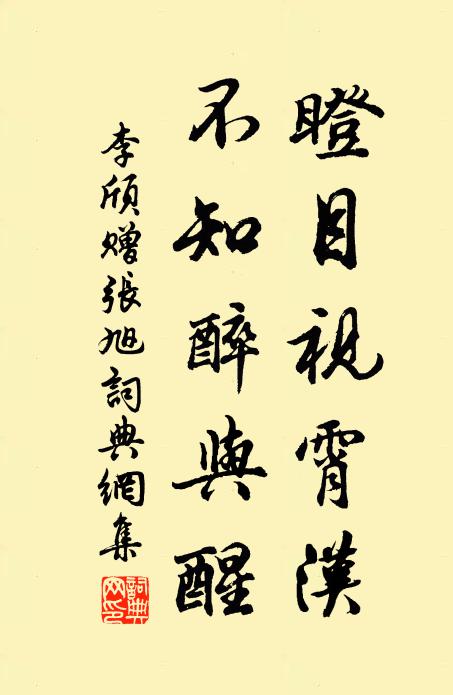 瞪目視霄漢
不知醉與醒
李頎贈張旭詞典網集
詞典
网印